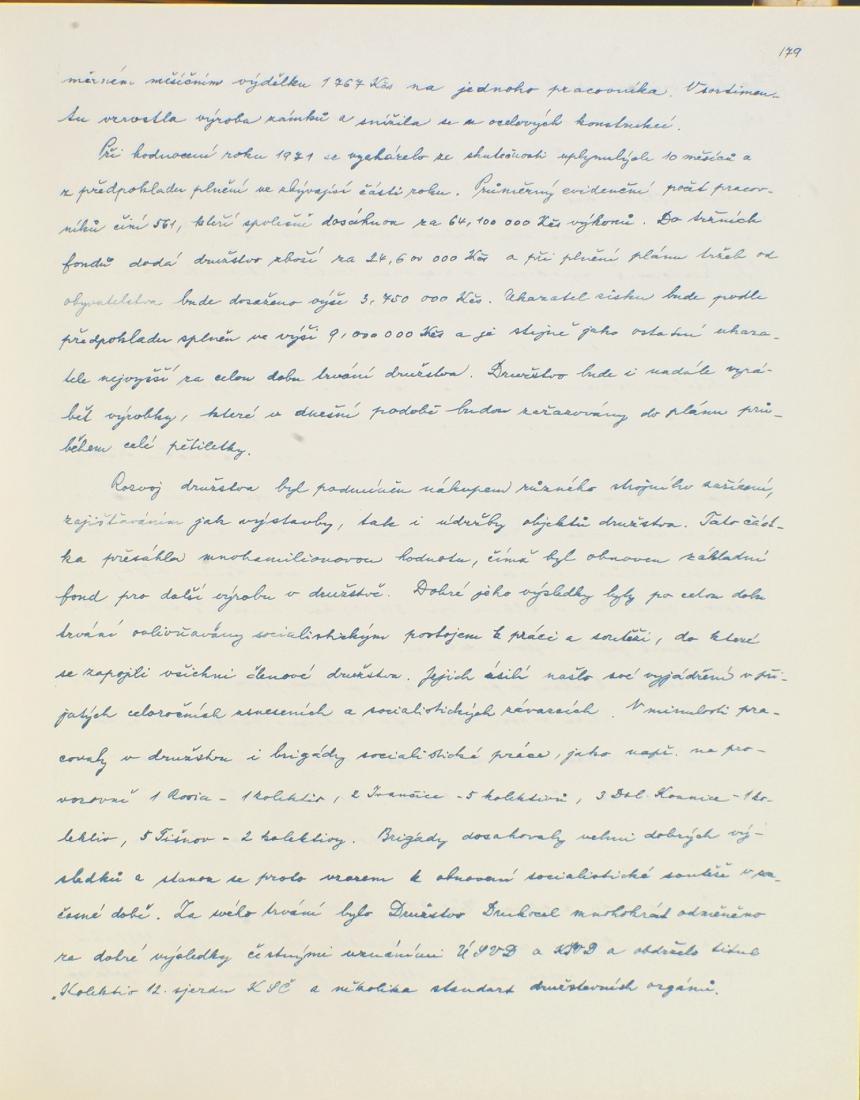 179
měrném měsíčním výdělku 1767 Kčs na jednoho pracovníka. V sortimen-
tu vzrostla výroba zámků a snížila se u ocelových konstrukcí.
Při hodnocení roku 1971 se vycházelo ze skutečnosti uplynulých 10 měsíců a
z předpokladu plnění ve zbývající části roku. Průměrný evidenční počet pracov-
níků činí 561, kteří společně dosáhnou za 64,100 000 Kčs výkonů. Do tržních
fondů dodá družstvo zboží za 24,600 000 Kčs a při plnění plánu tržeb od
obyvatelstva bude dosaženo výše 3,750 000 Kčs. Ukazatel zisku bude podle
předpokladu splněn ve výši 9,000 000 Kčs a je stejně jako ostatní ukaza-
tele nejvyšší za celou dobu trvání družstva. Družstvo bude i nadále vyrá-
bět výrobky, které v dnešní podobě budou zařazovány do plánu prů-
během celé pětiletky.
Rozvoj družstva byl podmíněn nákupem různého strojního zařízení,
zajišťováním jak výstavby, tak i údržby objektů družstva. Tato část-
ka přesáhla mnohamilionovou hodnotu, čímž byl obnoven základní
fond pro další výrobu v družstvě. Dobré jeho výsledky byly po celou dobu
trvání ovlivňovány socialistickým postojem k práci a soutěží, do které
se zapojili všichni členové družstva. Jejich úsilí našlo své vyjádření v při-
jatých celoročních usneseních a socialistických závazcích. V minulosti pra-
covaly v družstvu i brigády socialistické práce, jako např. na pro-
vozovně 1 Rosice - 1 kolektiv, 2 Ivančice - 5 kolektivů, 3 Dol. Kounice - 1 ko-
lektiv, 5 Tišnov - 2 kolektivy. Brigády dosahovaly velmi dobrých vý-
sledků a stanou se proto vzorem k obnovení socialistické soutěže v sou-
časné době. Za svého trvání bylo Družstvo Drukocel mnohokrát odměněno
za dobré výsledky čestnými uznáními ÚSVD a KSVD a obdrželo titul
"Kolektiv 12. sjezdu KSČ a několika standart družstevních orgánů.